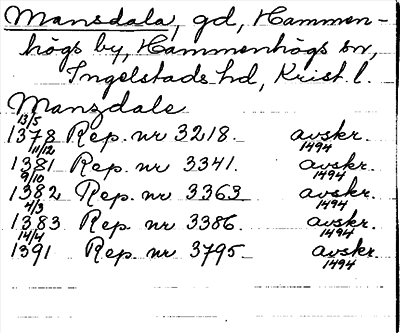 Mansdala, gd, Hammen-
högs by, Hammenhögs sn,
Ingelstads hd, Krist. l.
Manzdale
13/5
1378 Rep. nr 3218. avskr. 1494
11/12
1381 Rep. nr 3341. avskr. 1494
9/10
1382 Rep. nr 3363 avskr. 1494
4/3
1383 Rep. nr 3386. avskr. 1494
14/4
1391 Rep. nr 3795 avskr. 1494